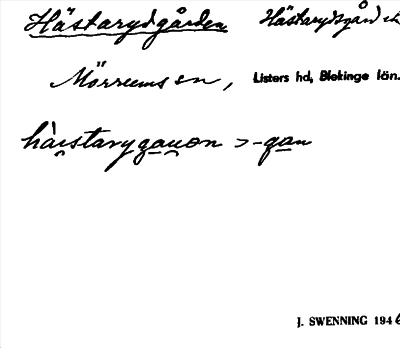 Hästarydgården Hästarydsgården
Mörrums sn, Listers hd, Blekinge län.
hàistarygauon > -gan
J. SWENNING 1946